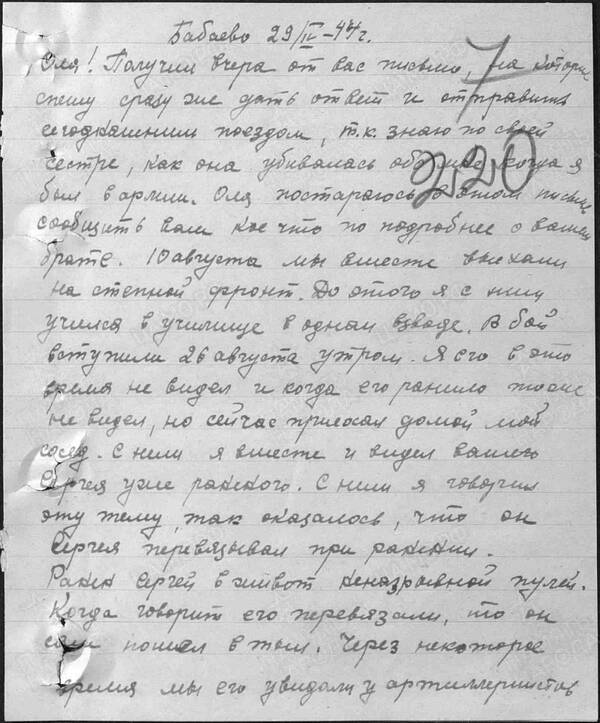 Бабаево 29/IV-44 г.
7
Оля! Получил вчера от вас письмо, на которое
спешу сразу же дать ответ и отправить
сегодняшним поездом, т.к. знаю по своей
сестре, как она убивалась обо мне когда я
220
был в армии. Оля постараюсь в этом письме
сообщить вам кое что по подробнее о вашем
брате. 10 августа мы вместе выехали
на степной фронт. До этого я с ним
учился в училище в одном взводе. В бой
вступили 26 августа утром. Я его в это
время не видел и когда его ранило тоже
не видел, но сейчас приехал домой мой
сосед. С ним я вместе и видел вашего
Сергея уже раненого. С ним я говорил
эту тему, так оказалось, что он
Сергея перевязывал при ранении.
Ранен Сергей в живот неразрывной пулей.
Когда говорит его перевязали, то он
сам пошел в тыл. Через некоторое
время мы его увидали у артиллеристов